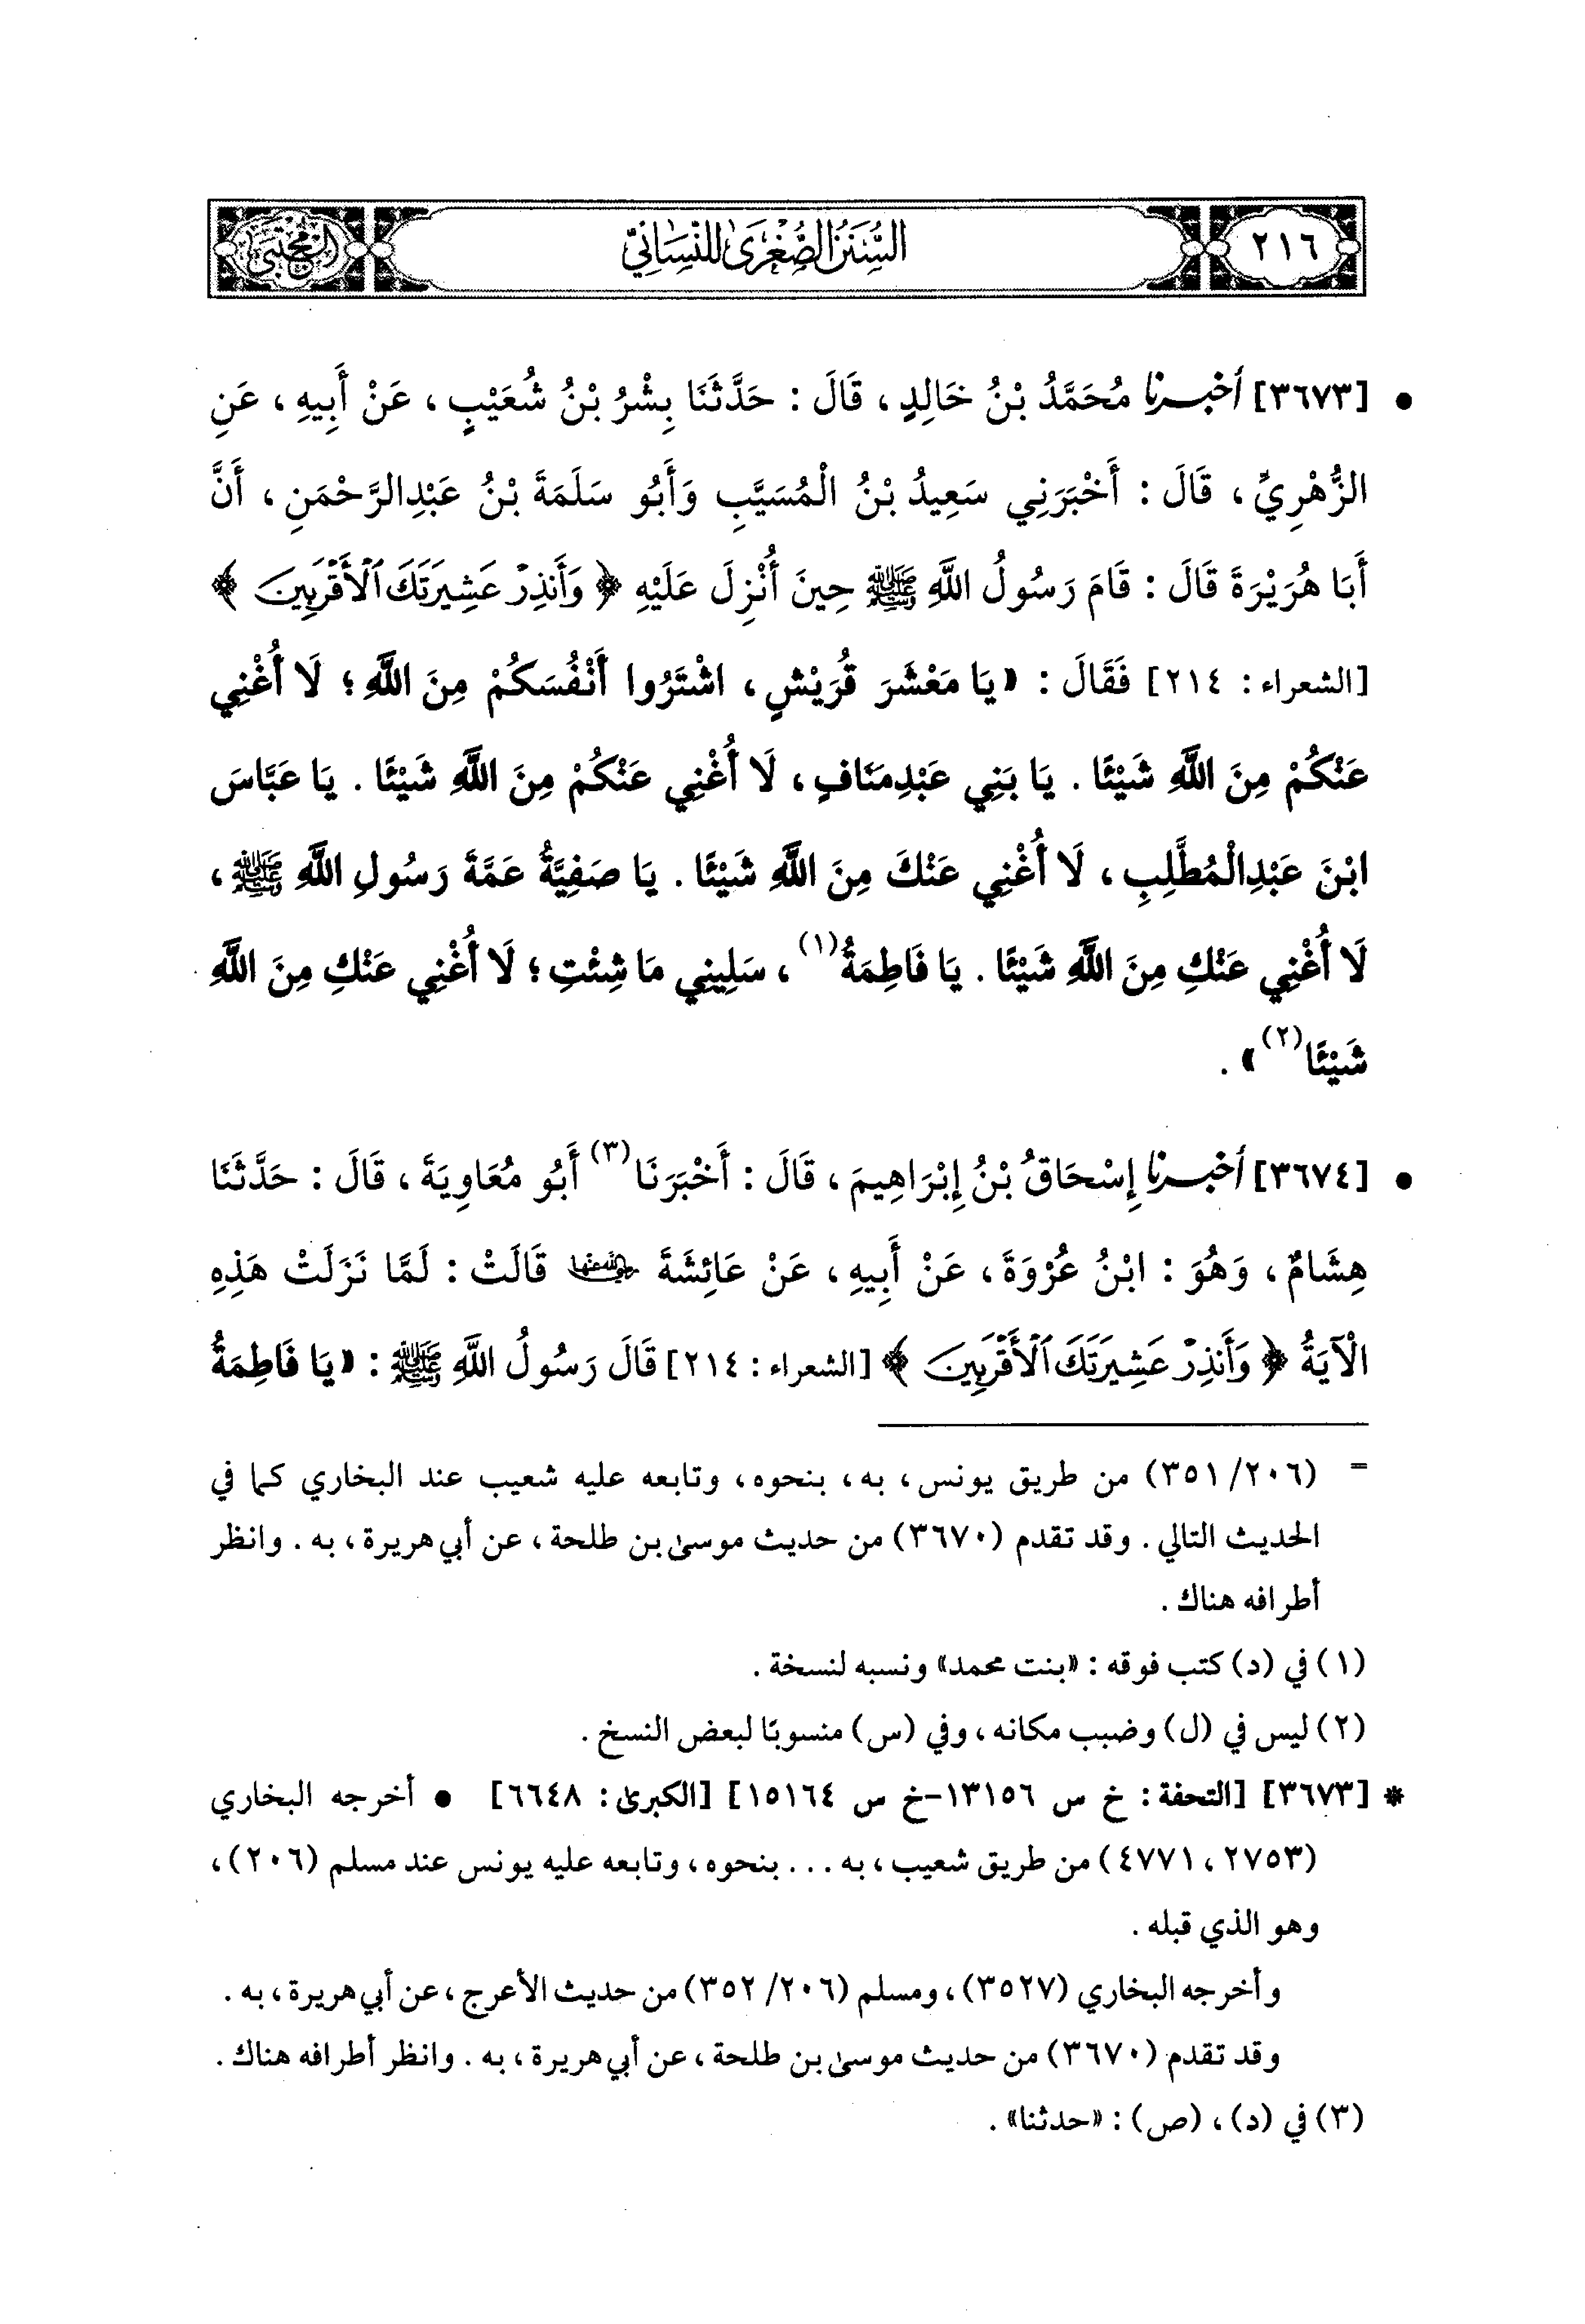 ٢١٦
السُّنَنُ الصُّغْرَىٰ لِلنَّسَائِيِّ
المجتبى
• [٣٦٧٣] أخبرنا مُحَمَّدُ بْنُ خَالِدٍ، قَالَ: حَدَّثَنَا بِشْرُ بْنُ شُعَيْبٍ، عَنْ أَبِيهِ، عَنِ
الزُّهْرِيِّ، قَالَ: أَخْبَرَنِي سَعِيدُ بْنُ الْمُسَيَّبِ وَأَبُو سَلَمَةَ بْنُ عَبْدِالرَّحْمَنِ، أَنَّ
أَبَا هُرَيْرَةَ قَالَ: قَامَ رَسُولُ اللَّهِ ﷺ حِينَ أُنْزِلَ عَلَيْهِ ﴿ وَأَنذِرْ عَشِيرَتَكَ ٱلْأَقْرَبِينَ ﴾
[الشعراء: ٢١٤] فَقَالَ: «يَا مَعْشَرَ قُرَيْشٍ، اشْتَرُوا أَنْفُسَكُمْ مِنَ اللَّهِ؛ لَا أُغْنِي
عَنْكُمْ مِنَ اللَّهِ شَيْئًا. يَا بَنِي عَبْدِمَنَافٍ، لَا أُغْنِي عَنْكُمْ مِنَ اللَّهِ شَيْئًا. يَا عَبَّاسَ
ابْنَ عَبْدِالْمُطَّلِبِ، لَا أُغْنِي عَنْكَ مِنَ اللَّهِ شَيْئًا. يَا صَفِيَّةُ عَمَّةَ رَسُولِ اللَّهِ ﷺ،
لَا أُغْنِي عَنْكِ مِنَ اللَّهِ شَيْئًا. يَا فَاطِمَةُ(١)، سَلِينِي مَا شِئْتِ؛ لَا أُغْنِي عَنْكِ مِنَ اللَّهِ
شَيْئًا(٢)».
• [٣٦٧٤] أخبرنا إِسْحَاقُ بْنُ إِبْرَاهِيمَ، قَالَ: أَخْبَرَنَا(٣) أَبُو مُعَاوِيَةَ، قَالَ: حَدَّثَنَا
هِشَامٌ، وَهُوَ: ابْنُ عُرْوَةَ، عَنْ أَبِيهِ، عَنْ عَائِشَةَ رضي الله عنها قَالَتْ: لَمَّا نَزَلَتْ هَذِهِ
الْآيَةُ ﴿ وَأَنذِرْ عَشِيرَتَكَ ٱلْأَقْرَبِينَ ﴾ [الشعراء: ٢١٤] قَالَ رَسُولُ اللَّهِ ﷺ: «يَا فَاطِمَةُ
= (٣٥١/٢٠٦) من طريق يونس، به، بنحوه، وتابعه عليه شعيب عند البخاري كما في
الحديث التالي. وقد تقدم (٣٦٧٠) من حديث موسىٰ بن طلحة، عن أبي هريرة، به. وانظر
أطرافه هناك.
(١) في (د) كتب فوقه: «بنت محمد» ونسبه لنسخة.
(٢) ليس في (ل) وضبب مكانه، وفي (س) منسوبًا لبعض النسخ.
* [٣٦٧٣] [التحفة: خ س ١٣١٥٦-خ س ١٥١٦٤] [الكبرىٰ: ٦٦٤٨] • أخرجه البخاري
(٢٧٥٣، ٤٧٧١) من طريق شعيب، به... بنحوه، وتابعه عليه يونس عند مسلم (٢٠٦)،
وهو الذي قبله.
وأخرجه البخاري (٣٥٢٧)، ومسلم (٣٥٢/٢٠٦) من حديث الأعرج، عن أبي هريرة، به.
وقد تقدم (٣٦٧٠) من حديث موسىٰ بن طلحة، عن أبي هريرة، به. وانظر أطرافه هناك.
(٣) في (د)، (ص): «حدثنا».